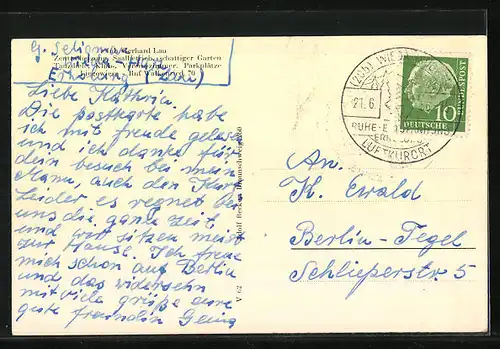 G. Seligma
Gerhard Lau
Zentralheizung, Saalbetrieb, schattiger Garten
Tanzdiele, Kino, Parkplätze
Ruf Walkenried 70
Erholung
Liebe Kathrin.
Die postkarte habe
ich mit freude gelesen
und ich danke für
dein besuch bei mein
Mann, auch den Kurt
Leider es regnet bei
uns die ganze Zeit
und wir sitzen meist
zur Hause. Ich freue
mich schon auf Berlin
und das widersehn
mit viele grüße eure
gute freundin Genia
V 62 Rudolf Beckers
(20b) WIEDA
21.6.
RUHE
LUFTKURORT
10
DEUTSCHE
BUNDESPOST
An.
K. Ewald
Berlin-Tegel
Schlieperstr. 5